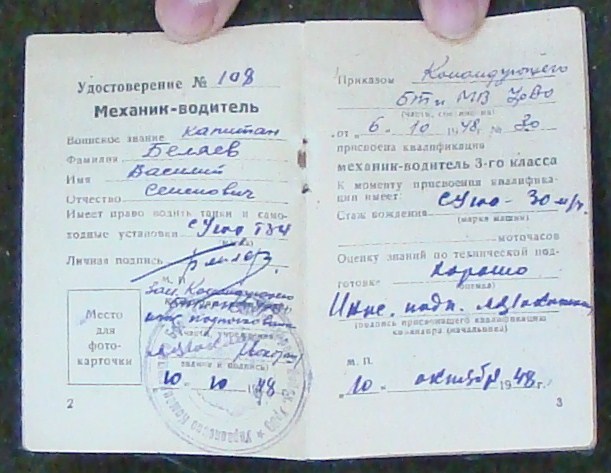 Удостоверение № 108
Механик-водитель
Воинское звание капитан
Фамилия Беляев
Имя Василий
Отчество Семенович
Имеет право водить танки и само-
ходные установки
Личная подпись
М. П.
Зам. Командующего
Место
для
фото-
карточки
"10" 10 1948
2
Приказом Командующего
БТ и МВ
"от" 6. 10 1948 № 20
присвоена квалификация
механик-водитель 3-го класса
К моменту присвоения квалифика-
ции имеет:
Стаж вождения 30 м/ч.
(марка машин)
моточасов
Оценку знаний по технической под-
готовке хорошо
Инж. подп.
(подпись присвоившего квалификацию
командира (начальника)
м. п.
"10" октября 1948 г.
3